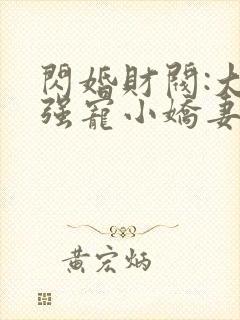 閃婚財閥:大
强寵小嬌妻
黄宏炳